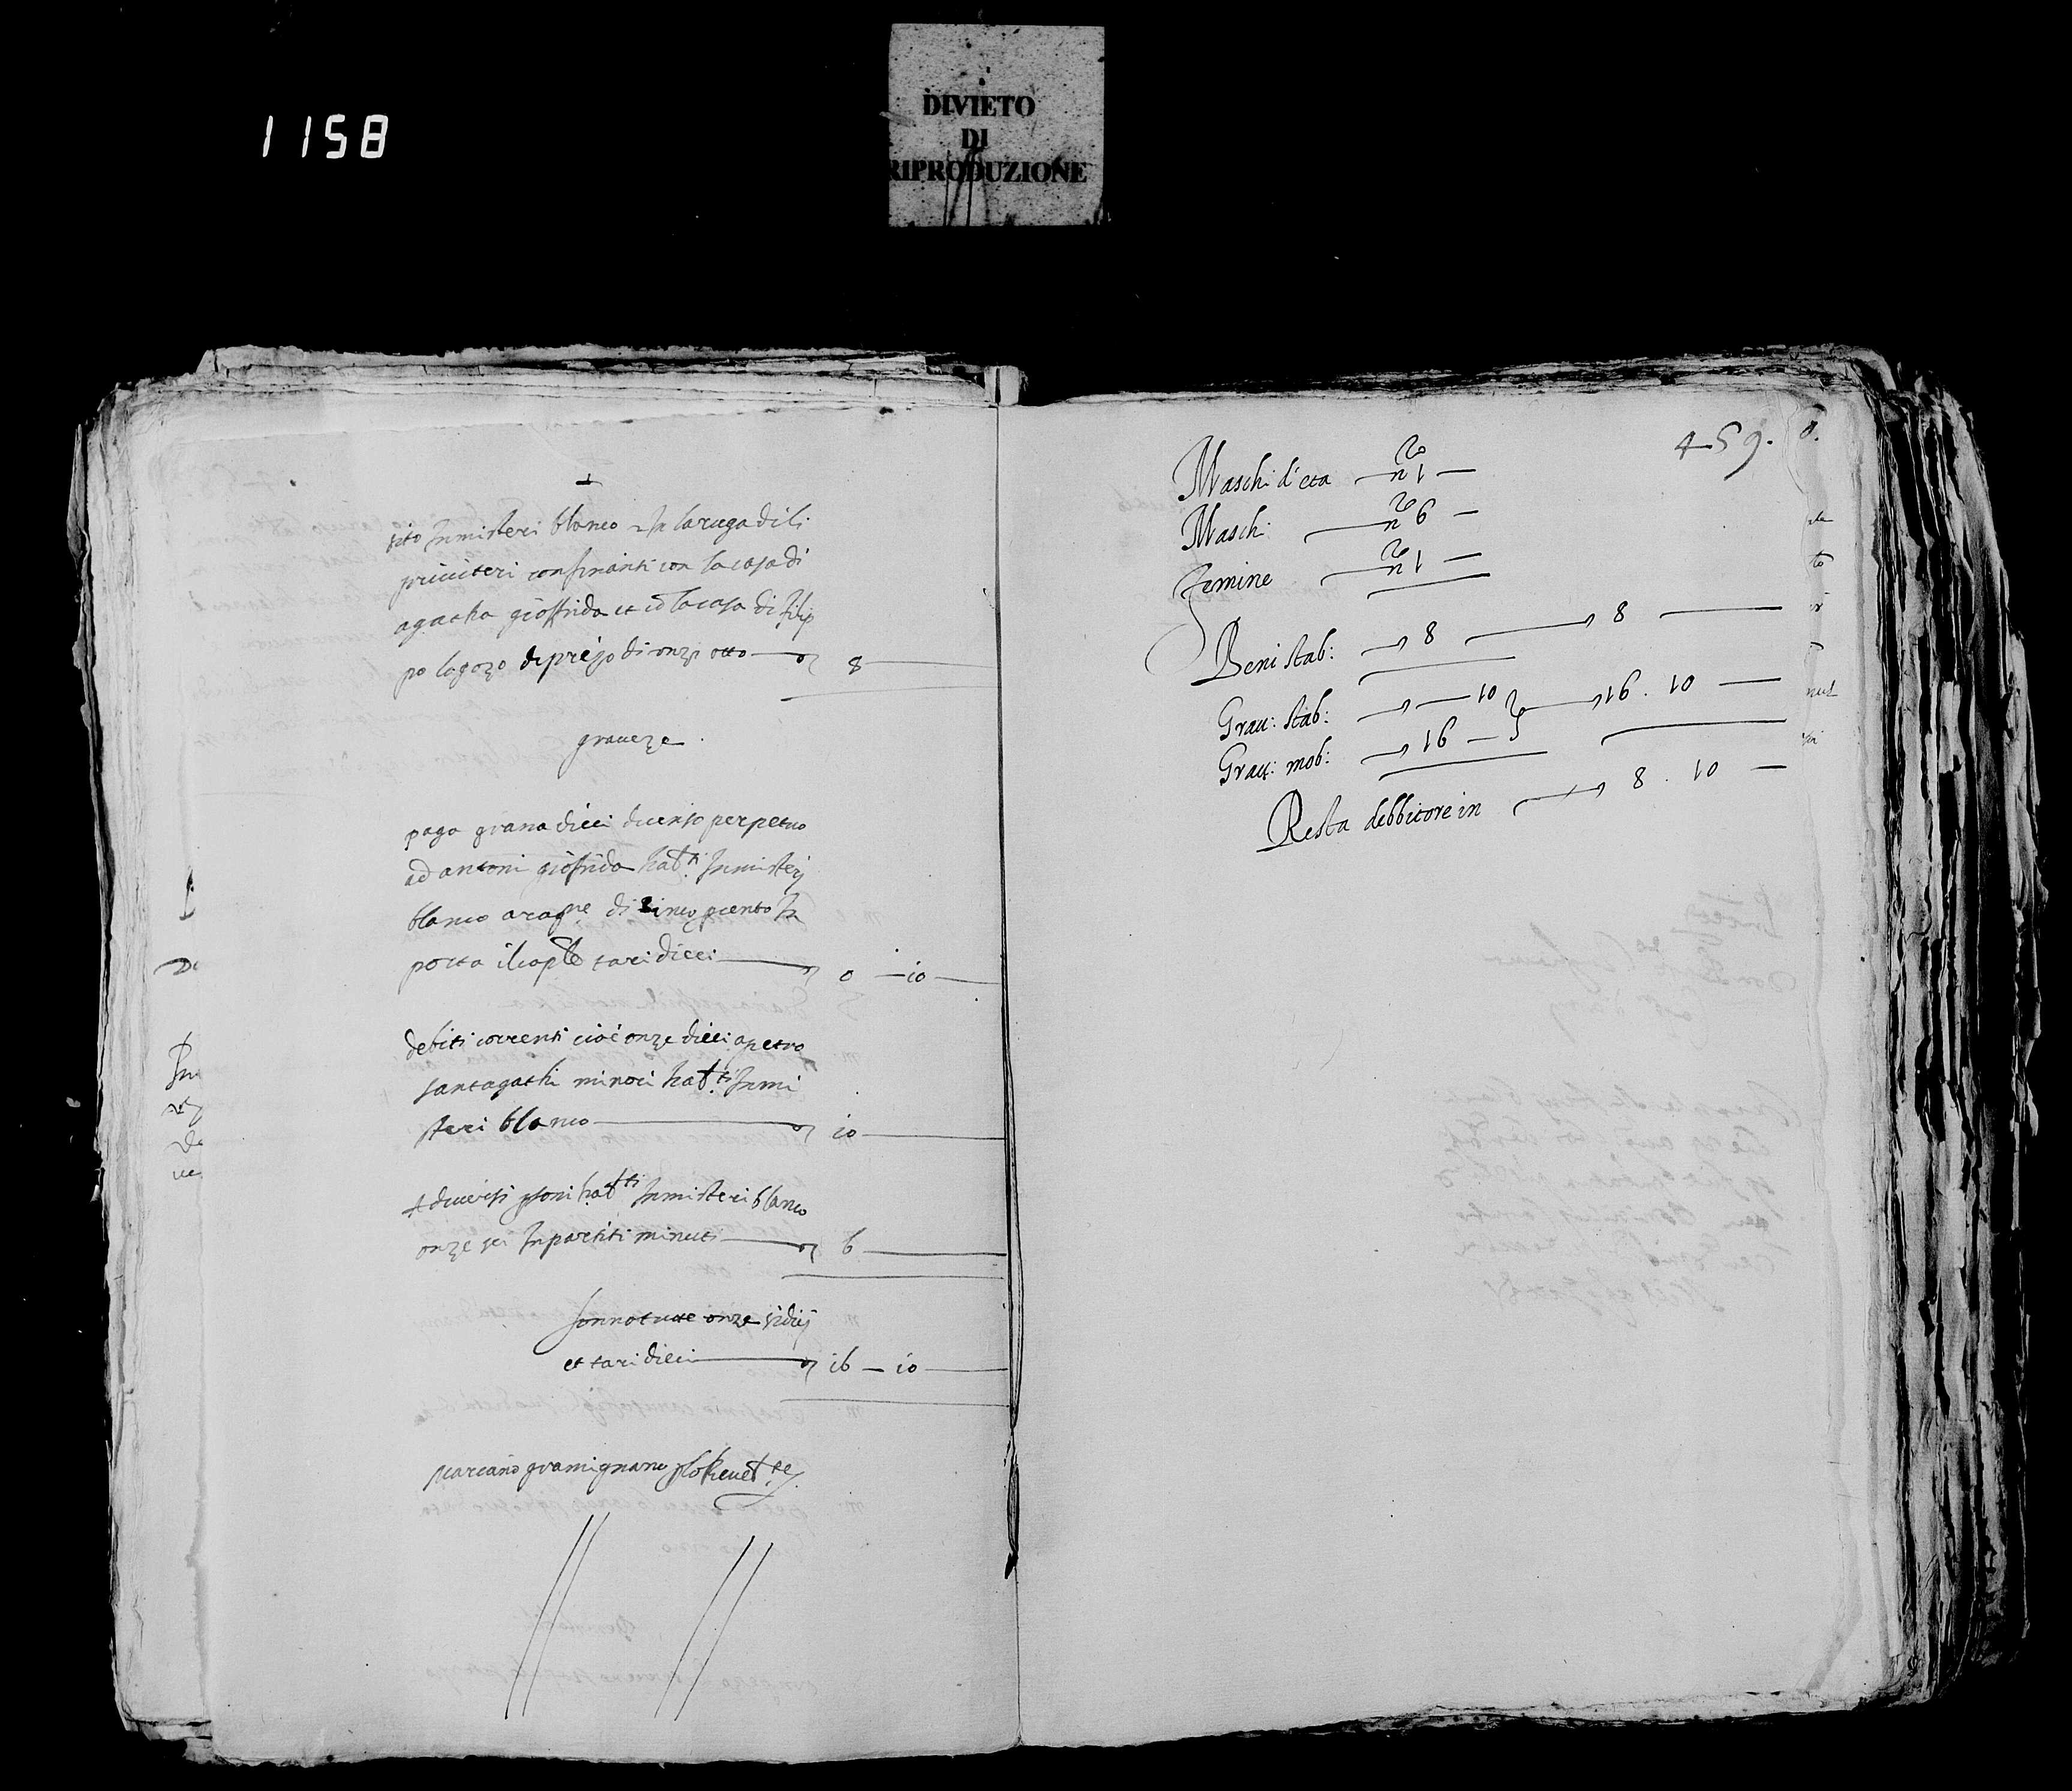 1158
DIVIETO
DI
RIPRODUZIONE
sito In misteri blanco In la ruga di li
priviteri confinanti con la casa di
agatha gioffrida et cō la casa di filip
po lagozo de prezo di onze otto 8
graveze.
paga grana dieci di censo perpetuo
ad antoni gioffrida hatti In misterj
blanco a ragne di cinco per cento In
porta il caple tari dieci 0 — 10
debiti correnti cioè onze dieci a petro
santagathi minori hatti In mi
steri blanco 10
A diversi psoni hatti In misteri blanco
onze sei In partiti minuti 6
sonno tutte onze sidicj
et tari dieci 16 — 10
gramignano
459.
Maschi d'eta no 1
Maschi no 6
Femine no 1
Beni stab: 8 8
Grav: stab: 10 16 . 10
Grav: mob: 16
Resta debbitore in 8 . 10